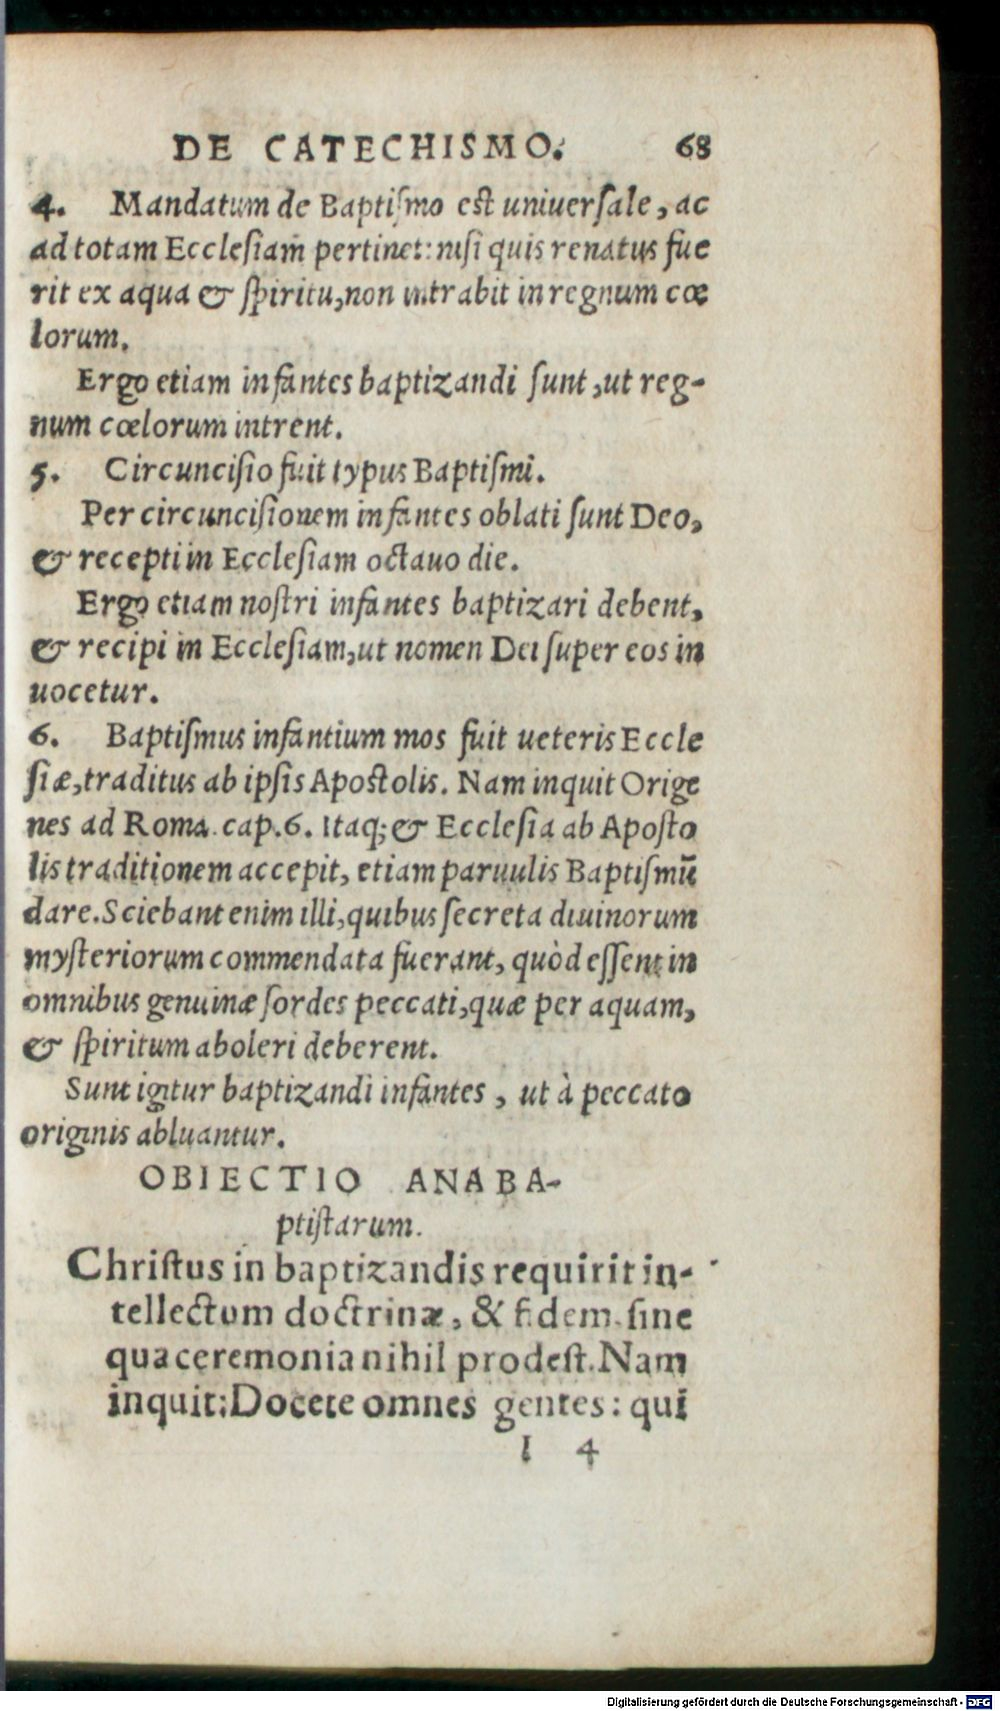 DE CATECHISMO. 68
4. Mandatum de Baptiſmo est uniuerſale, ac
ad totam Eccleſiam pertinet: niſi quis renatus fue
rit ex aqua & ſpiritu, non intrabit in regnum cœ
lorum.
Ergo etiam infantes baptizandi ſunt, ut reg-
num cœlorum intrent.
5. Circunciſio fuit typus Baptiſmi.
Per circunciſionem infantes oblati ſunt Deo,
& recepti in Eccleſiam octauo die.
Ergo etiam noſtri infantes baptizari debent,
& recipi in Eccleſiam, ut nomen Dei ſuper eos in
uocetur.
6. Baptiſmus infantium mos fuit ueteris Eccle
ſiæ, traditus ab ipſis Apostolis. Nam inquit Orige
nes ad Roma. cap. 6. Itaq; & Eccleſia ab Apoſto
lis traditionem accepit, etiam paruulis Baptiſmū
dare. Sciebant enim illi, quibus ſecreta diuinorum
myſteriorum commendata fuerant, quòd eſſent in
omnibus genuinæ ſordes peccati, quæ per aquam,
& ſpiritum aboleri deberent.
Sunt igitur baptizandi infantes, ut à peccato
originis abluantur.
OBIECTIO ANABA-
ptiſtarum.
Chriſtus in baptizandis requirit in-
tellectum doctrinæ, & fidem. ſine
qua ceremonia nihil prodeſt. Nam
inquit: Docete omnes gentes: qui
I 4
Digitalisierung gefördert durch die Deutsche Forschungsgemeinschaft - DFG